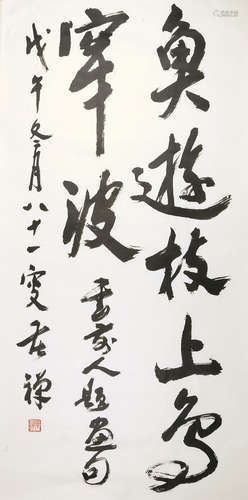 魚遊枝上鳥
穿波 書前人題畫句
戊午冬月八十一叟苦禪